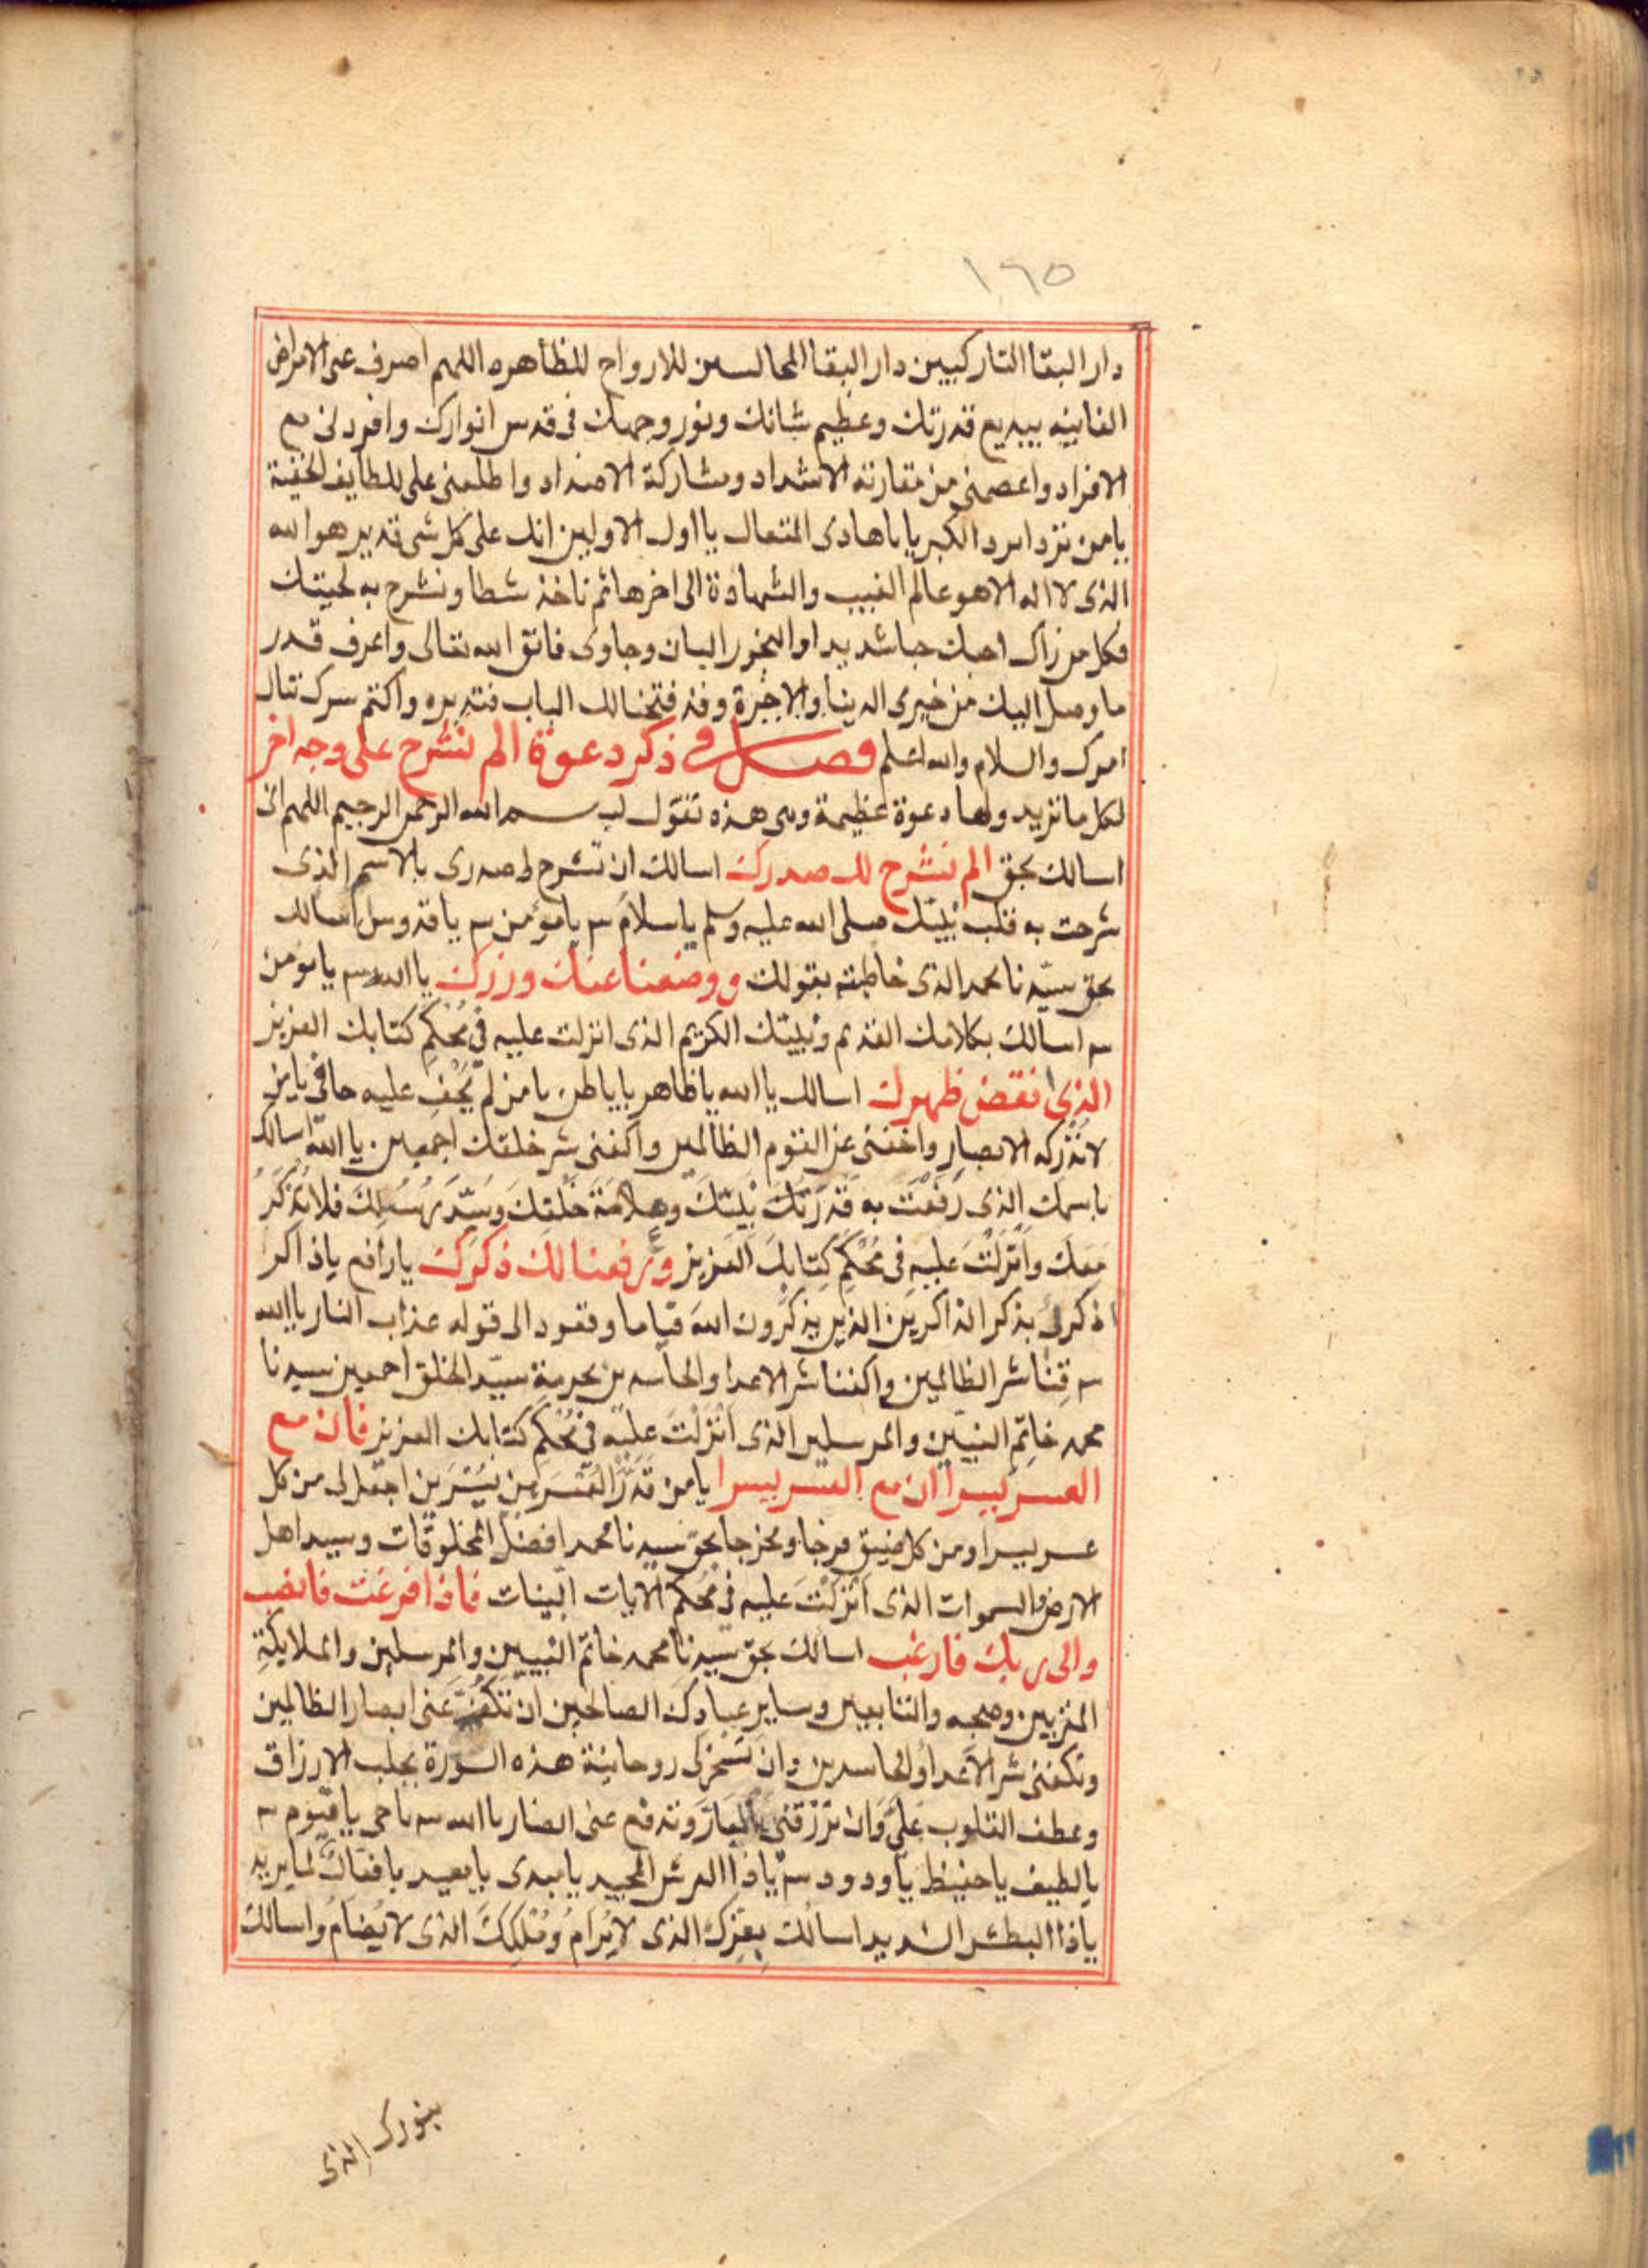 ١٦٥
دار البقا التاركيين دار البقا المجالسين للارواح للظاهره اللهم اصرف عنى الامراض
الفانيه ببديع قدرتك وعظيم شانك ونور وجهك فى قدس انوارك وافردنى مع
الافراد واعصمنى من مقارنة الاشداد ومشاركة الاضداد واطلعنى على للطايف الخفية
يامن تردا برد الكبريا يا هادى المتعال يا اول الاولين انك على كل شى قدير هو الله
الذى لا اله الا هو عالم الغيب والشهادة الى اخرها ثم تاخذ شطا وتشرح به لحيتك
فكل من راك احبك حبا شديدا والبخور اللبان وجاوى فاتق الله تعالى واعرف قدر
ما وصل اليك من خيرى الدينا والاخرة وقد فتحنا لك الباب فتدبره واكتم سرك تنال
امرك والسلام والله اعلم فصل فى ذكر دعوة الم نشرح على وجه اخر
لكل ما تريد ولها دعوة عظيمة وهى هذه تقول بسم الله الرحمن الرحيم اللهم انى
اسالك بحق الم نشرح لك صدرك اسالك ان تشرح لى صدرى بالاسم الذى
شرحت به قلب نبيك صلى الله عليه وسلم يا سلام ٣ يا مؤمن ٣ يا قدوس اسالك
بحق سيدنا محمد الذى خاطبته بقولك ووضعنا عنك وزرك يا الله ٣ يا مومن
٣ اسالك بكلامك القديم ونبيك الكريم الذى انزلت عليه فى مُحْكَمِ كتابك العزيز
الذى انقض ظهرك اسالك يا الله يا ظاهر يا باطن يا من لم يَخْفِ عليه خافى يا من
لا تُدْركه الابصار واخفنى عن القوم الظالمين واكفنى شر خلقك اجمعين يا الله اسالك
باسمك الذى رَفَعْتَ به قَدْرَ نبيك وَعلامَة خَلْقِكَ وسَيّد رُسُلِكَ فلا تُذْكَرُ
مَعَك وانزلتَ عليه فى مُحْكَمِ كِتَابِكَ العزيز ورفعنا لك ذكرك يا رافع يا ذاكر
اذكرنى بذكر الذاكرين الذين يذكرون الله قياما وقعود الى قوله عذاب النار يا الله
٣ قِنَا شر الظالمين واكفنا شر الاعدا والحاسدين بحرمة سيّد الخلق اجمعين سيدنا
محمد خاتم النبيّين والمرسلين الذى انزلتَ عليه فى مُحْكَمِ كتابك العزيز فان مع
العسر يسرا ان مع العسر يسرا يا من قَدَّرَ العُسْرَ بين يُسْرَين اجعل لى من كل
عسر يسرا ومن كل ضيق فرجا ومخرجا بحق سيدنا محمد افضل المخلوقات وسيد اهل
الارض والسموات الذى انزلتَ عليه فى مُحكم الايات البينات فاذا فرغت فانصب
والى ربك فارغب اسالك بحق سيدنا محمد خاتم النبيين والمرسلين والملايكةِ
المقربين وصحبه والتابعين وساير عبادك الصالحين ان تكف عنى ابصار الظالمين
وتكفنى شر الاعدا والحاسدين وان تسخر لى روحانية هذه السورة بجلب الارزاق
وعطف القلوب علىّ وان ترزقنى البار وتدفع عنى الضار يا الله ٣ يا حى يا قيوم ٣
يا لطيف يا حفيظ يا ودود ٣ يا ذا العرش المجيد يا مبدى يا معيد يا فعال لما يريد
يا ذا البطش الشديد اسالك بعزك الذى لا يُرَامُ ومُلْكِكَ الذى لا يُضَامُ واسالك
بنورك الذى